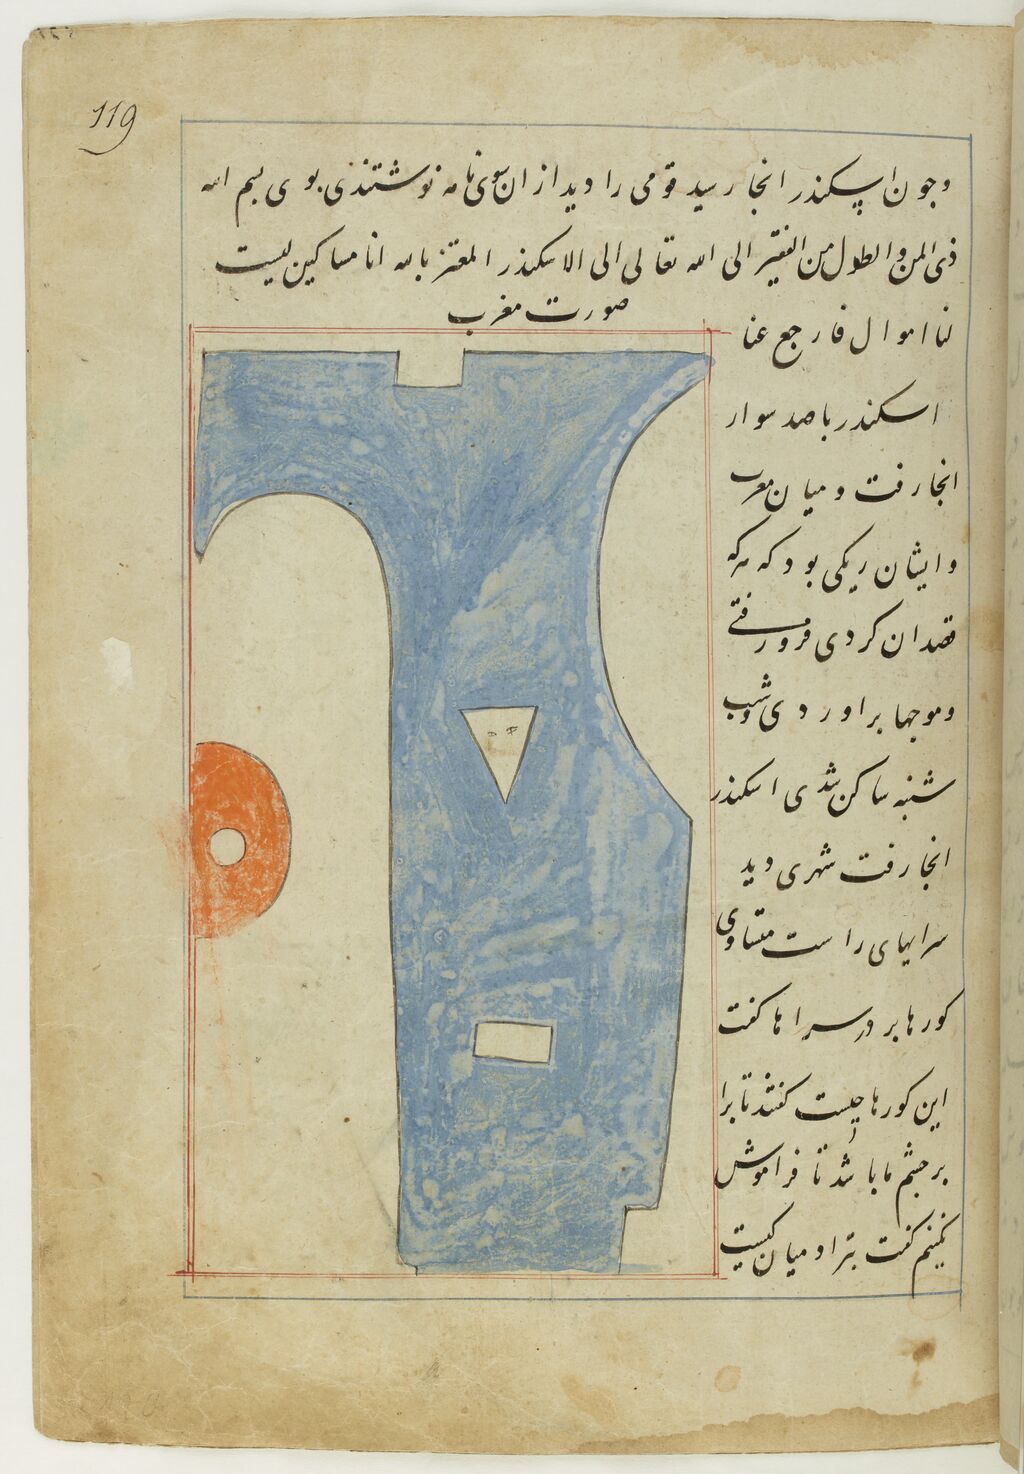 119
وجون اسکندر انجا رسید قومی را دید از ان سوی نامه نوشتندی بوی بسم الله
ذی المن والطول من الفقیر الی الله تعالی الی الاسکندر المعتز بالله انا مساکین لیست
صورت مغرب
لنا اموال فارجع عنا
اسکندر با صد سوار
انجا رفت و میان مغرب
وایشان ریکی بود که هرکه
قصد ان کردی فرو رفتی
وموجها براوردی وشب
شنبه ساکن شدی اسکندر
انجا رفت شهری دید
سرایهای راست متساوی
کورها بر در سراها کفت
این کورها چیست کفتند تا برا
بر جشم ما باشد تا فراموش
نکنیم کفت بترا و میان کیست